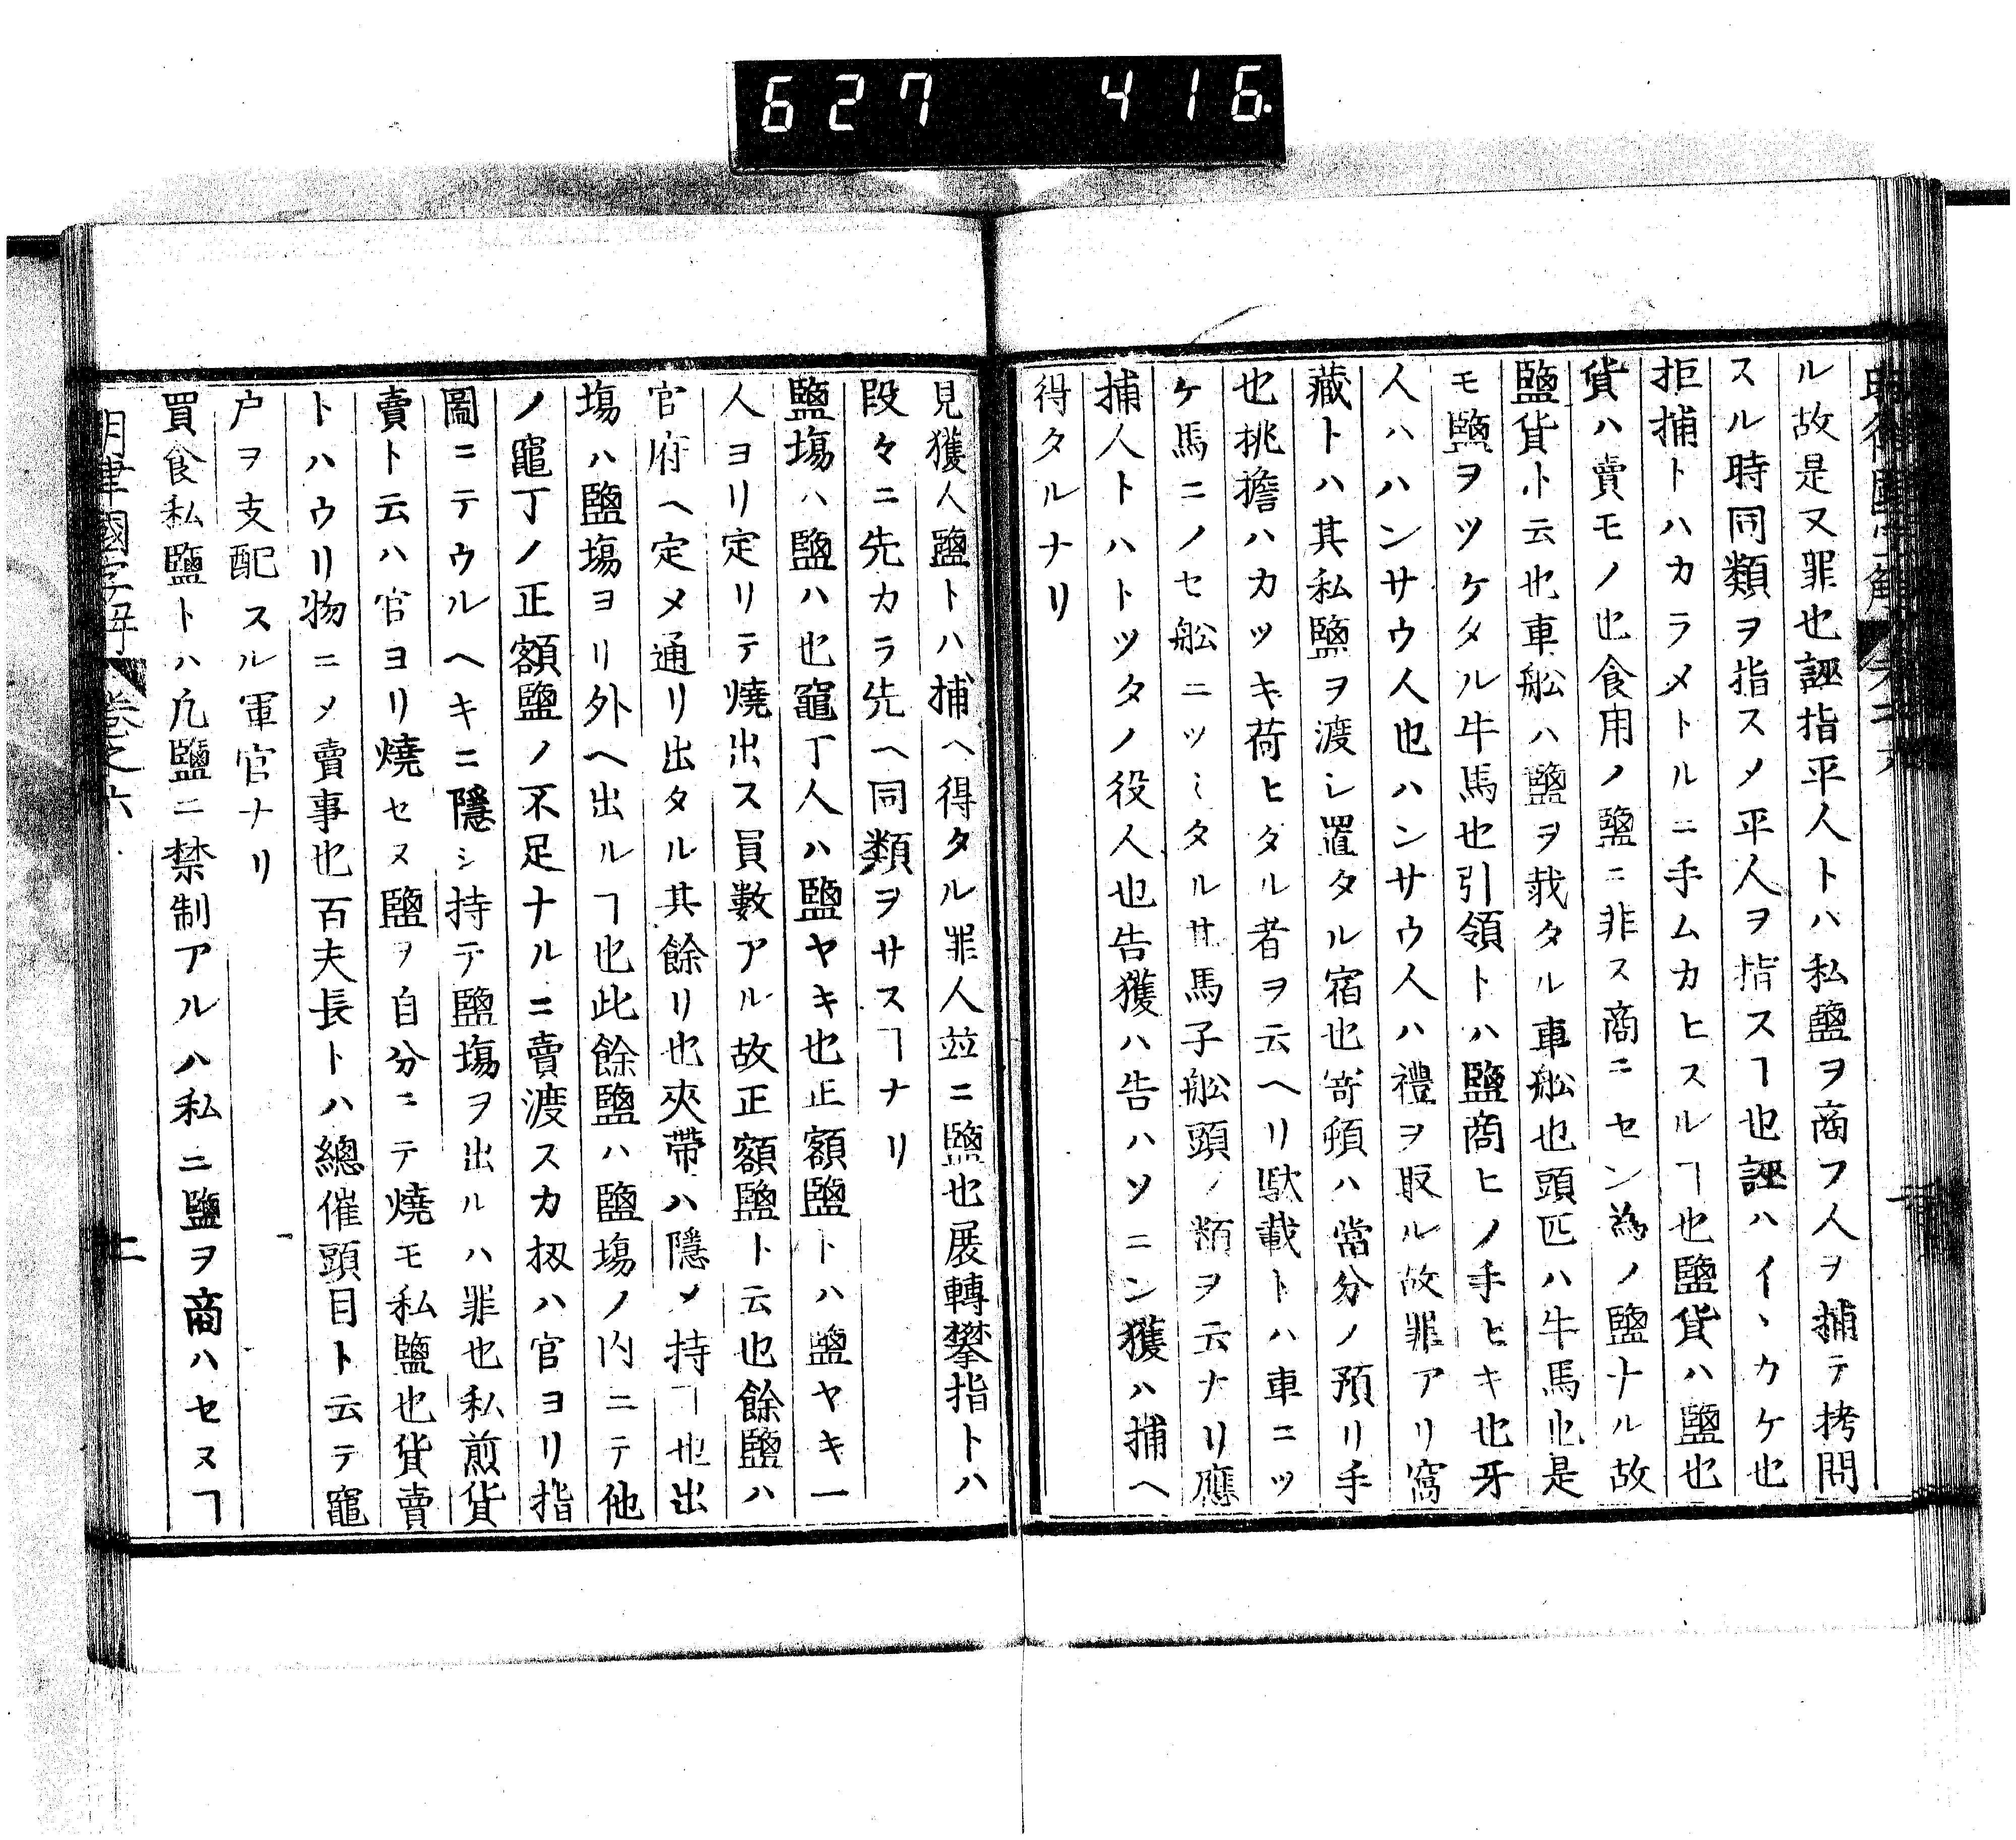 627 416
ル故是又罪也誣指平人トハ私鹽ヲ商フ人ヲ捕テ拷問
スル時同類ヲ指スメ平人ヲ指スヿ也誣ハイヽカケ也
拒捕トハカラメトルニ手ムカヒスルヿ也鹽貨ハ鹽也
貨ハ賣モノ也食用ノ鹽ニ非ス商ニセン為ノ鹽ナル故
鹽貨ト云也車舩ハ鹽ヲ載タル車舩也頭匹ハ牛馬也是
モ鹽ヲツケタル牛馬也引領トハ鹽商ヒノ手ヒキ也牙
人ハハンサウ人也ハンサウ人ハ禮ヲ取ル故罪アリ窩
藏トハ其私鹽ヲ渡シ置タル宿也寄頓ハ當分ノ預リ手
也挑擔ハカツキ荷ヒタル者ヲ云ヘリ馱載トハ車ニツ
ケ馬ニノセ舩ニツミタル其馬子舩頭ノ類ヲ云ナリ應
捕人トハトツタノ役人也告獲ハ告ハソニン獲ハ捕ヘ
得タルナリ
見獲人鹽トハ捕ヘ得タル罪人竝ニ鹽也展轉攀指トハ
段々ニ先カラ先ヘ同類ヲサスヿナリ
鹽塲ハ鹽ハ也竈丁人ハ鹽ヤキ也正額鹽トハ鹽ヤキ一
人ヨリ定リテ燒出ス員數アル故正額鹽ト云也餘鹽ハ
官府ヘ定メ通リ出タル其餘リ也夾帶ハ隱メ持ヿ也出
塲ハ鹽塲ヨリ外ヘ出ルヿ也此餘鹽ハ鹽塲ノ内ニテ他
ノ竈丁ノ正額鹽ノ不足ナルニ賣渡スカ扨ハ官ヨリ指
圖ニテウルヘキニ隱シ持テ鹽塲ヲ出ルハ罪也私煎貨
賣ト云ハ官ヨリ燒セヌ鹽ヲ自分ニテ燒モ私鹽也貨賣
トハウリ物ニメ賣事也百夫長トハ總催頭目ト云テ竈
户ヲ支配スル軍官ナリ
買食私鹽トハ凡鹽ニ禁制アルハ私ニ鹽ヲ商ハセヌヿ
明律國字解 卷之六 二